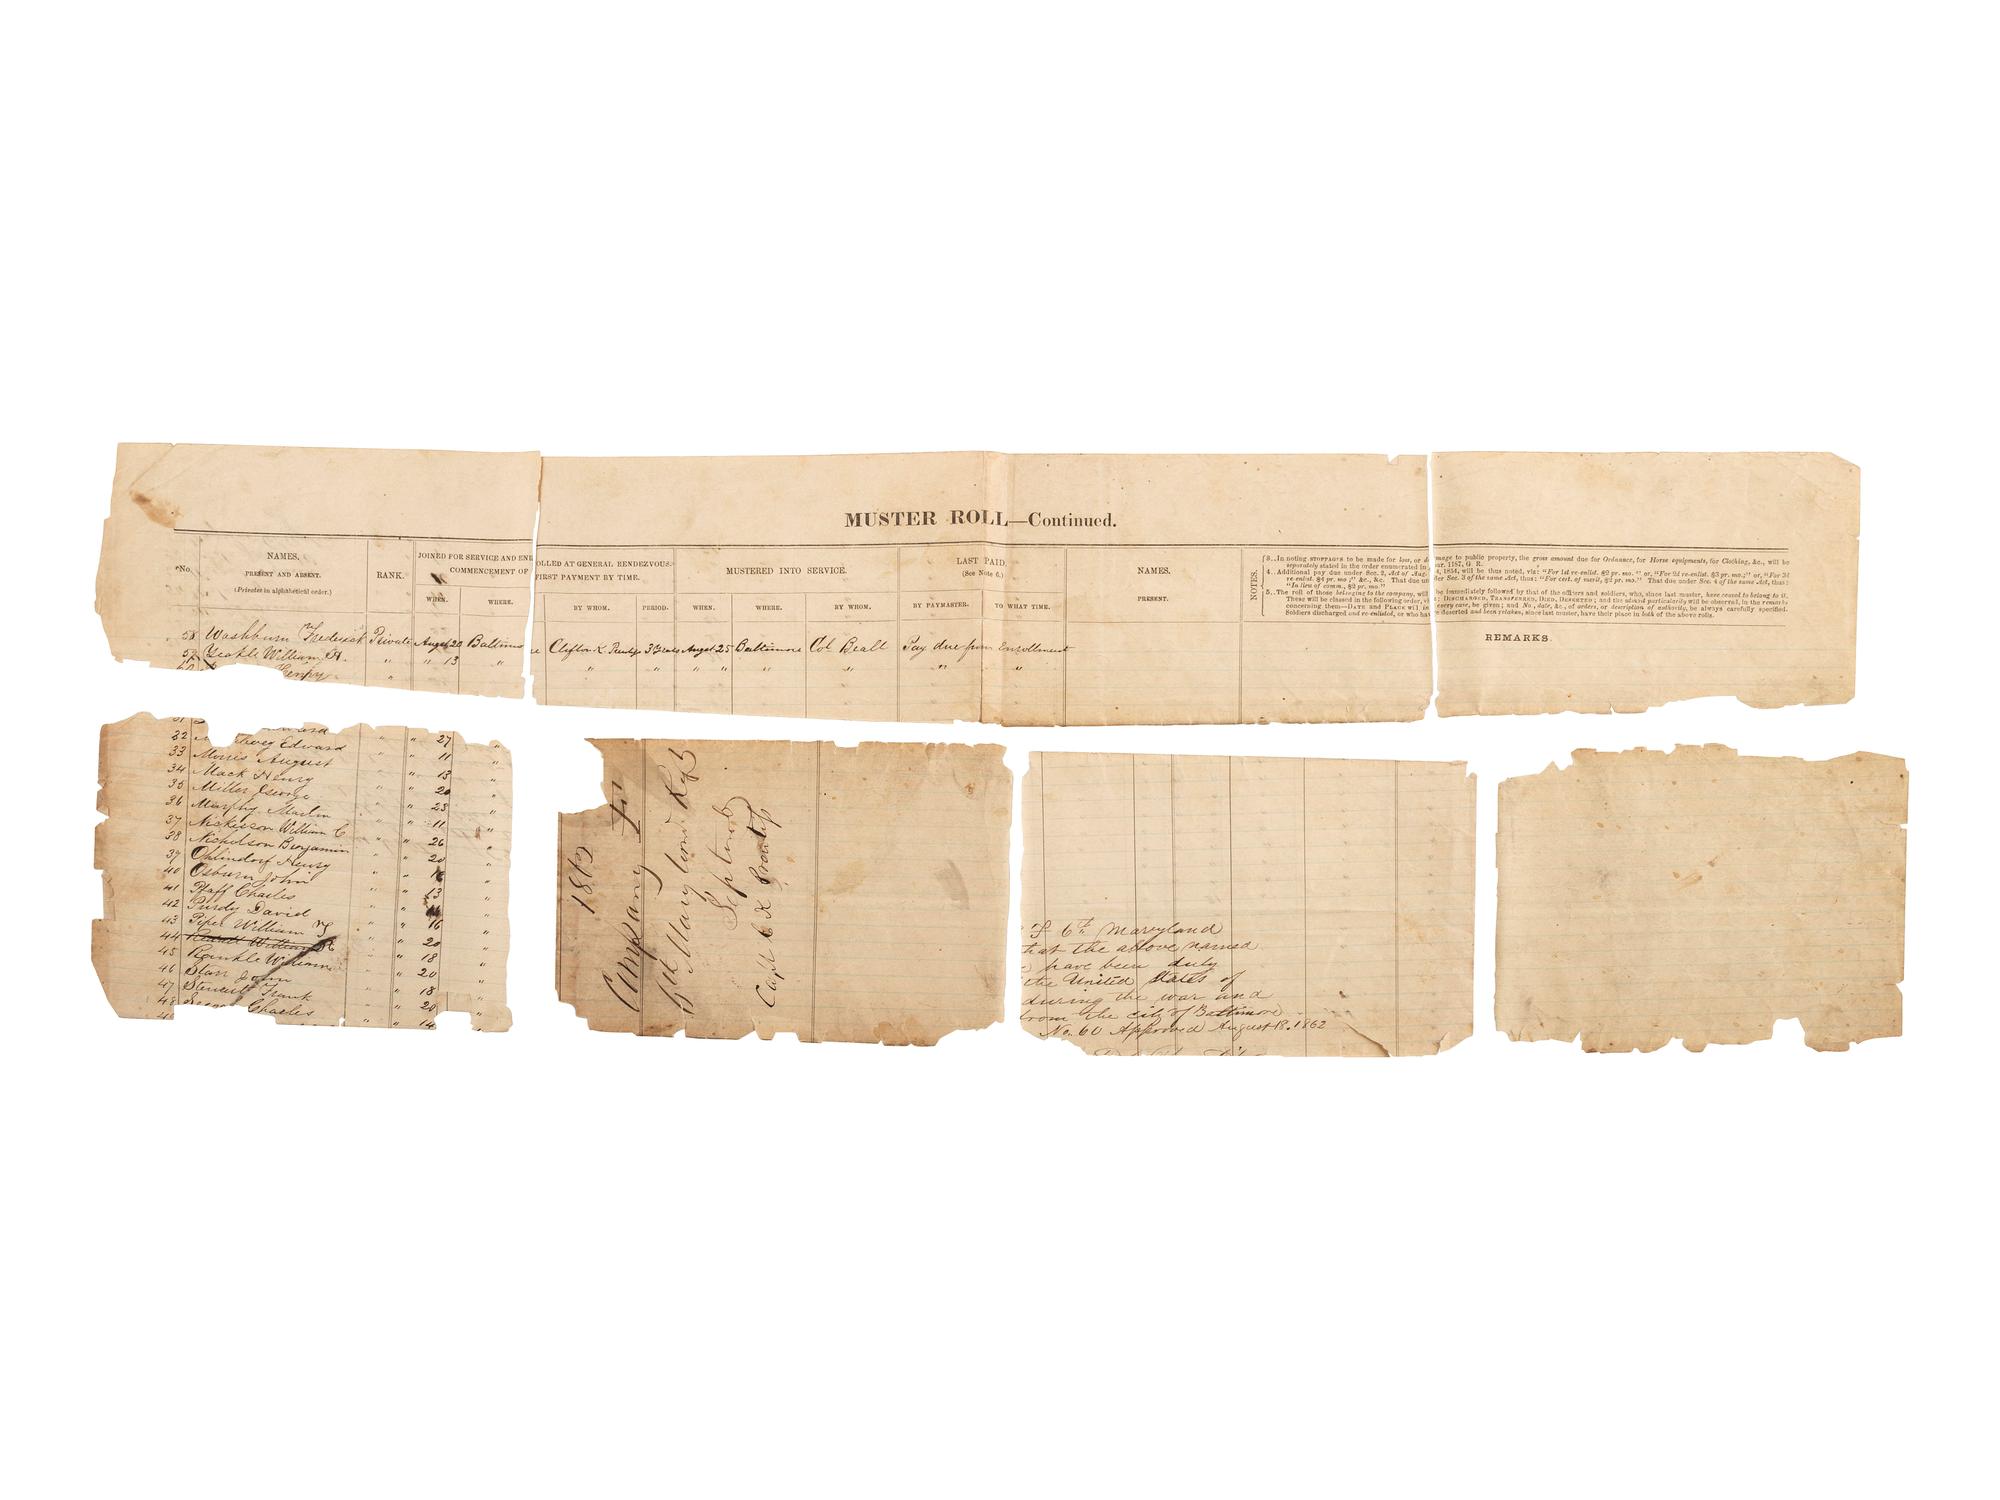 MUSTER ROLL—Continued.
No. NAMES. PRESENT AND ABSENT. (Privates in alphabetical order.)
RANK.
JOINED FOR SERVICE AND ENROLLED AT GENERAL RENDEZVOUS.
COMMENCEMENT OF FIRST PAYMENT BY TIME.
WHEN. WHERE. BY WHOM. PERIOD.
MUSTERED INTO SERVICE.
WHEN. WHERE. BY WHOM.
LAST PAID.
(See Note 6.)
BY PAYMASTER. TO WHAT TIME.
NAMES.
PRESENT.
NOTES.
3..In noting STOPPAGES to be made for loss, or damage to public property, the gross amount due for Ordnance, for Horse equipments, for Clothing, &c., will be
separately stated in the order enumerated in par. 1187, G. R.
4..Additional pay due under Sec. 2, Act of Aug. 4, 1854, will be thus noted, viz: "For 1st re-enlist. $2 pr. mo.;" or, "For 2d re-enlist. $3 pr. mo.;" or, "For 3d
re-enlist. $4 pr. mo;" &c., &c. That due under Sec. 3 of the same Act, thus: "For cert. of merit, $2 pr. mo." That due under Sec. 4 of the same Act, thus:
"In lieu of comm., $2 pr. mo."
5..The roll of those belonging to the company, will be immediately followed by that of the officers and soldiers, who, since last muster, have ceased to belong to it.
These will be classed in the following order, viz: DISCHARGED, TRANSFERRED, DIED, DESERTED; and the utmost particularity will be observed, in the remarks
concerning them—DATE and PLACE will in every case, be given; and No., date, &c., of orders, or description of authority, be always carefully specified.
Soldiers discharged and re-enlisted, or who have deserted and been retaken, since last muster, have their place in both of the above rolls.
REMARKS.
58 Washburn Frederick Private August 20 Baltimore Clifton K. 3 Years August 25 Baltimore Col Beall Pay due from Enrollment
59 Yeakle William H. " " 13 " " " " " " " "
60 Henry "
31
32 Edward " " 27 "
33 Morris August " " 11 "
34 Mack Henry " " 13 "
35 Miller George " " 20 "
36 Murphy Martin " " 23 "
37 Nickisson William C " " 11 "
38 Nicholson Benjamin " " 26 "
39 Ohlindorf Henry " " 20 "
40 Osburn John " " "
41 Pfaff Charles " " 13 "
42 Purdy David " " "
43 Piper William " " 16 "
44 William " " 20 "
45 Rankle William " " 18 "
46 Starr John " " 20 "
47 Stewart Frank " " 18 "
48 Charles " " 20 "
" " 14 "
1862
Company F
6th Maryland Regt
September
Capt C K Prentiss
"F" 6th Maryland
that the above named
have been duly
the United States of
during the war and
from the city of Baltimore
No. 60 Approved August 18. 1862